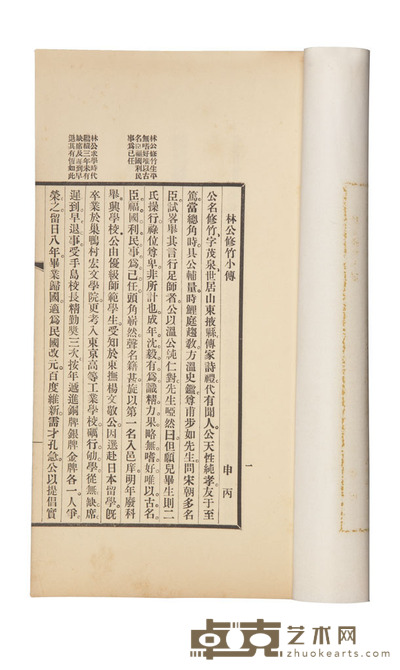 林公修竹小傳
申丙
一
公名修竹字茂泉世居山東掖縣傳家詩禮代有聞人公天性純孝友于至
篤當總角時具公輔量時鯉庭趨敎方溫史鑑尊甫步如先生問宋朝多名
臣試畧舉其言行足師者公以溫公純仁對先生啞然曰但願兒畢生則二
氏操行祿位尊卑非所計也成年沈毅有爲識精力果略無嗜好唯以古名
臣福國利民事爲己任頭角嶄然聲名籍甚旋以第一名入邑庠明年廢科
舉興學校公由優級師範學生受知於東撫楊文敬公因送赴日本留學旣
卒業於巢鴨村宏文學院更考入東京高等工業學校礪行劬學從無缺席
遲到早退事受手島校長精勤獎三次按年遞進銅牌銀牌金牌各一人爭
榮之留日八年畢業歸國適爲民國改元百度維新需才孔急公以提倡實
林公修竹生平
無嗜好唯以古
名臣福國利民
事爲己任
林公求學時代
缺席及遲到早
退其有恆如此
卓克艺术网
www.zhuokearts.com